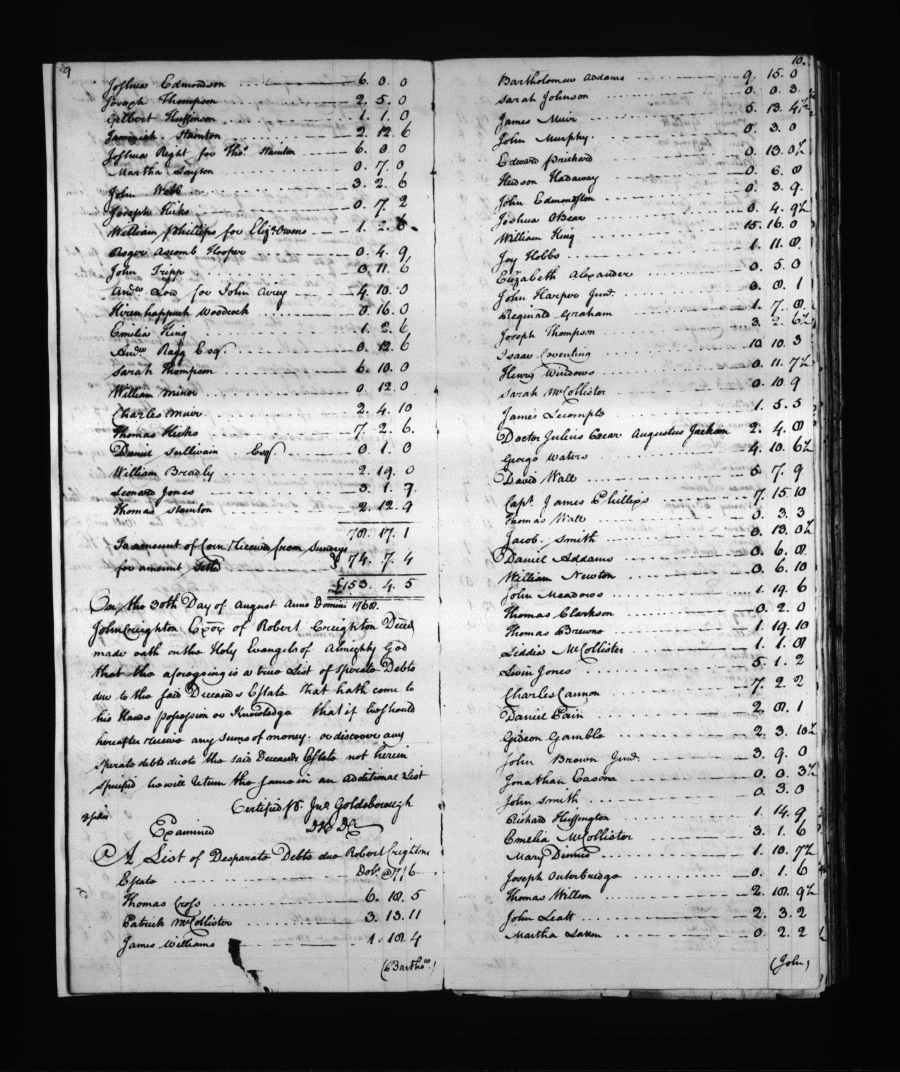 9
Joshua Edmondson 6. 0. 0
Joseph Thompson 2. 5. 0
Gilbert Huffinson 1. 1. 0
Stainton 2. 12. 6
Joshua Right for Thos. Stainton 6. 0. 0
Martha Layton 0. 7. 0
John Webb 3. 2. 6
Joseph Hicks 0. 7. 2
William Phillips for Elizа. Owens 1. 2.
Roger Ascomb Hooper 0. 4. 9
John Tripp 0. 11. 6
Andw. Low for John Airey 4. 10. 0
Kirenhappuch Woodcock 0. 16. 0
Emilia King 1. 2. 6
Andw. Ragg Esqr. 0. 12. 6
Sarah Thompson 6. 10. 0
William Minor 0. 12. 0
Charles Muir 2. 4. 10
Thomas Hicks 7. 2. 6.
Daniel Sullivain Esqr. 0. 1. 0
William Bradly 2. 19. 0
Leonard Jones 3. 1. 9.
Thomas Stainton 2. 12. 9
78. 17. 1
To amount of Corn Received from Sundrys
for amount 74. 7. 4
£153. 4. 5
On the 30th Day of August Anno Domini 1768.
John Creighton Exor. of Robert Creighton Deced
made oath on the Holy Evangels of Almighty God
that the aforegoing is a true List of Sperate Debts
due to the said Deceaseds Estate that hath come to
his Hands possession or Knowledge that if he should
hereafter receive any sums of money or discover any
sperate debts due to the said Deceaseds Estate not herein
specified he will return the same in an additional List
Certified pr. Jno. Goldsborough
Examined
A List of Desperate Debts due Robert Creightons
Estate Dolr. @ 7/6
Thomas Cross 6. 18. 5
Patrick McCollister 3. 13. 11
James Williams 1. 18. 4
(Barthow.)
10.
Bartholomew Addams 9. 15. 0
Sarah Johnson 0. 0. 3.
James Muir 5. 13. 4½
John Murphy. 0. 3. 0
Edward Prichard 0. 13. 0½
Hudson Hadaway 0. 6. 8
John Edmondson 0. 3. 9.
Joshua Obear 0. 4. 9½
William King 15. 16. 0
Joy Hobbs 1. 11. 8.
Elizabeth Alexander 0. 5. 0
John Harper Junr. 0. 8. 1
Reginald Graham 1. 7. 8.
Joseph Thompson 3. 2. 6½
Isaac Coventing 10. 10. 3
Henry Windows 0. 11. 7½
Sarah McCollister 0. 10. 9
James Lecompte 1. 5. 5
Doctor Julius Cezar Augustus Jackson 2. 4. 8
George Waters 4. 10. 6½
David Wall 5. 7. 9
Capt. James Phillips 7. 15. 10
Thomas Wall 0. 3. 3
Jacob Smith 0. 13. 0½
Daniel Addams 0. 6. 8
William Newton 0. 6. 10
John Meadows 1. 19. 6
Thomas Clarkson 0. 2. 0
Thomas Browne 1. 19. 10
Liddia McCollister 1. 1. 8
Levin Jones 5. 1. 2
Charles Cannon 7. 2. 2
Daniel Pain 2. 8. 1
Gideon Gamble 2. 3. 10½
John Brown Junr. 3. 9. 0
Jonathan Easom 0. 0. 3½
John Smith 0. 3. 0
Richard Huffington 1. 14. 9
Emelia McCollister 3. 1. 6
Mary Dinnis 1. 10. 7½
Joseph Outerbridge 0. 1. 6
Thomas Willson 2. 18. 9½
John Leatt 2. 3. 2
Martha Laken 0. 2. 2
(John)